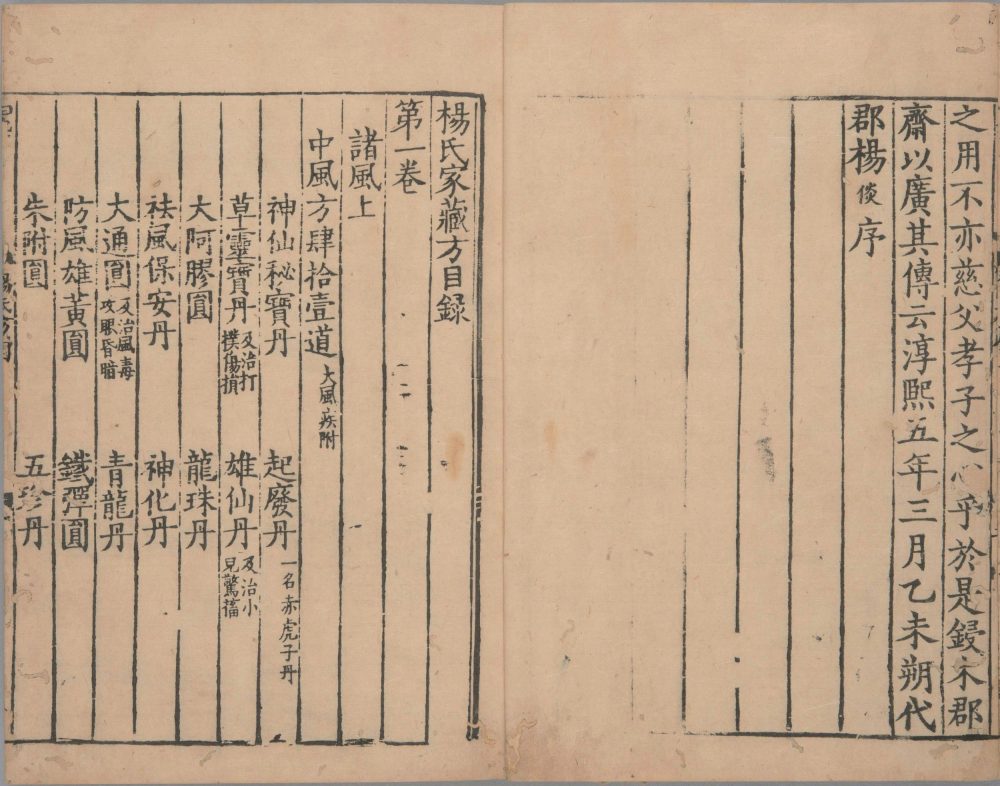 之用不亦慈父孝子之心乎於是鋟木郡
齋以廣其傳云淳熙五年三月乙未朔代
郡楊倓序
楊氏家藏方目録
第一卷
諸風上
中風方肆拾壹道大風疾附
神仙秘寶丹 起廢丹一名赤虎子丹
草靈寶丹及治打撲傷損 雄仙丹及治小兒驚搐
大阿膠圓 龍珠丹
祛風保安丹 神化丹
大通圓及治風毒攻眼昏暗 青龍丹
防風雄黃圓 鐵彈圓
朱附圓 五珍丹